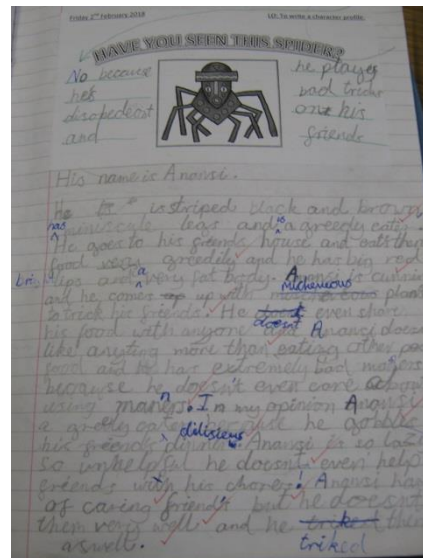 Friday 2nd February 2018 LO: To write a character profile.
HAVE YOU SEEN THIS SPIDER?
No because
hes
disobedeast
and
he plays
bad tricks
on his
friends
His name is Anansi.
He is striped black and brown
has minuscule legs and is a greedy eater.
He goes to his friends house and eats their
food very greedily and he has big red
lips and a very fat body. Anansi is cunning
and he comes up with plans
to trick his friends. He doesn't even share
his food with anyone Anansi doesn
like anyting more than eating other
food and he has extremely bad maners
because he doesn't even care about
using manners. In my opinion Anansi
a greedy because he gobbles
his friends dilisieus Anansi is so
so unhelpful he doesnt even help
friends with his chores! Anansi has
of caring friends but he doesnt
them very well and he triked
aswell.